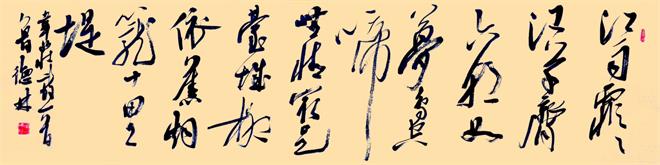 江雨霏〻
江草齊
六朝如
夢鳥空
啼
無情最是
臺城柳
依舊烟
籠十里
堤
韋莊詩一首
德林